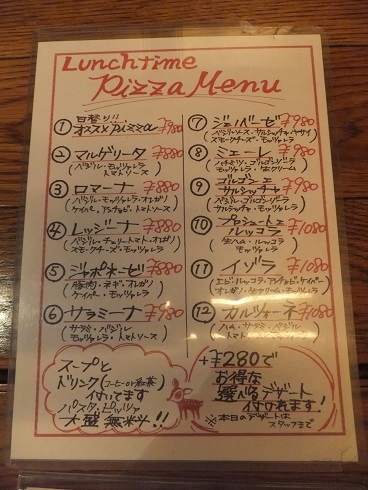 Lunchtime
Pizza Menu
① 日替り!!
オススメPizza ¥980
② マルゲリータ ¥880
(バジル・モッツァレラ
トマトソース)
③ ロマーナ ¥880
(バジル・モッツァレラ・オレガノ
ケイパー・アンチョビ・トマトソース)
④ レッジーナ ¥880
(バジル・チェリートマト・オレガノ
スモークチーズ・モッツァレラ)
⑤ ジャポネーゼ ¥880
(豚肉・ネギ・オレガノ
ケイパー・モッツァレラ)
⑥ サラミーナ ¥980
(サラミ・バジル
モッツァレラ・トマトソース)
⑦ ジェノベーゼ ¥980
(バジルソース・サルシッチャ・ヤサイ
スモークチーズ・モッツァレラ)
⑧ ミエーレ ¥980
(ハチミツ・ゴルゴンゾーラ
モッツァレラ・生クリーム)
⑨ ゴルゴン エ
サルシッチャ ¥980
(バジル・ゴルゴンゾーラ
サルシッチャ・モッツァレラ)
⑩ プロシュート エ
ルッコラ ¥1080
(生ハム・ルッコラ
モッツァレラ)
⑪ イゾラ ¥1080
(エビ・ルッコラ・アンチョビ・ケイパー
オレガノ・生クリーム・モッツァレラ)
⑫ カルツォーネ ¥1080
(ハム・サラミ・バジル
トマトソース・モッツァレラ)
スープと
ドリンク(コーヒーor紅茶)
付いてます
パスタ、ピッツァ
大盛無料!!
+¥280で
お得な
選べるデザート
付けれます!
※本日のデザートは
スタッフまで